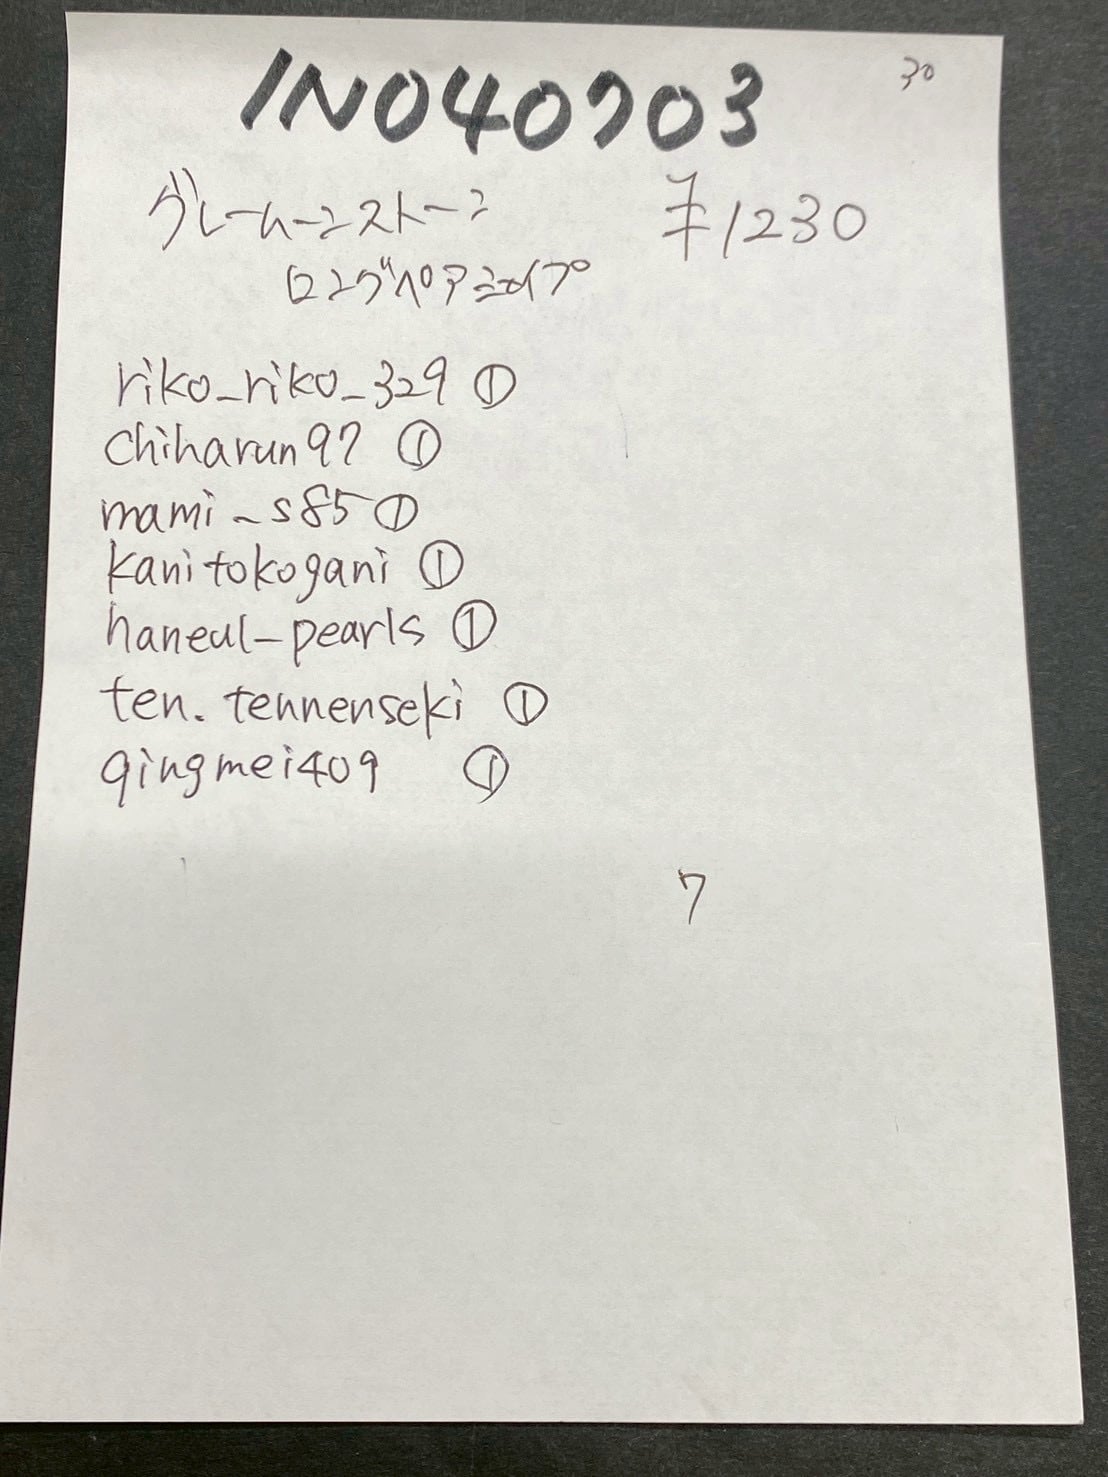 IN040703
30
グレームーンストーン ¥1230
ロングペアシェイプ
riko_riko_329 ①
chiharun97 ①
mami_s85 ①
kanitokogani ①
haneul_pearls ①
ten.tennenseki ①
qingmei409 ①
7